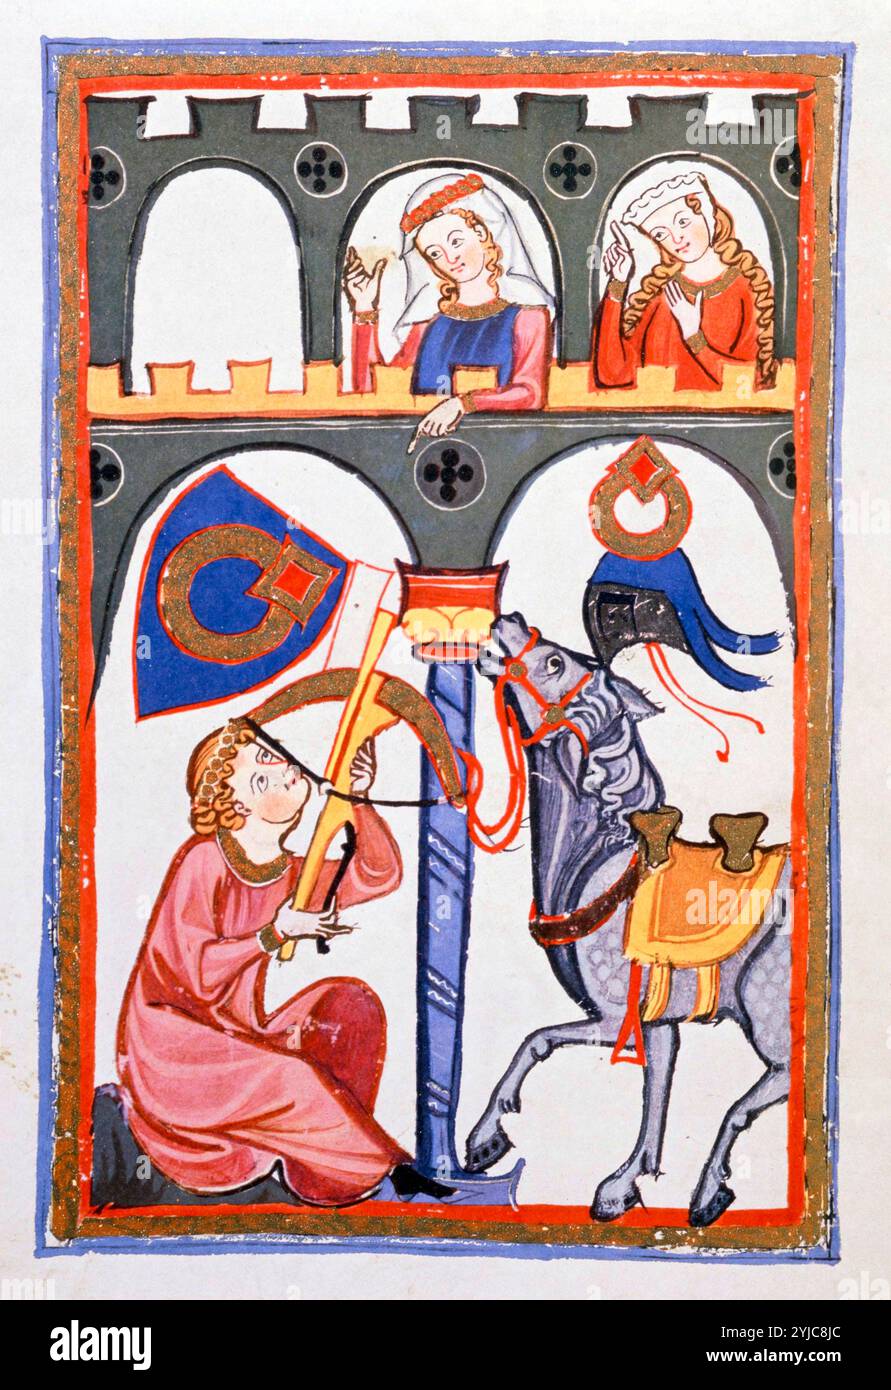 alamy
alamy
Image ID: 2YJC8JC
www.alamy.com